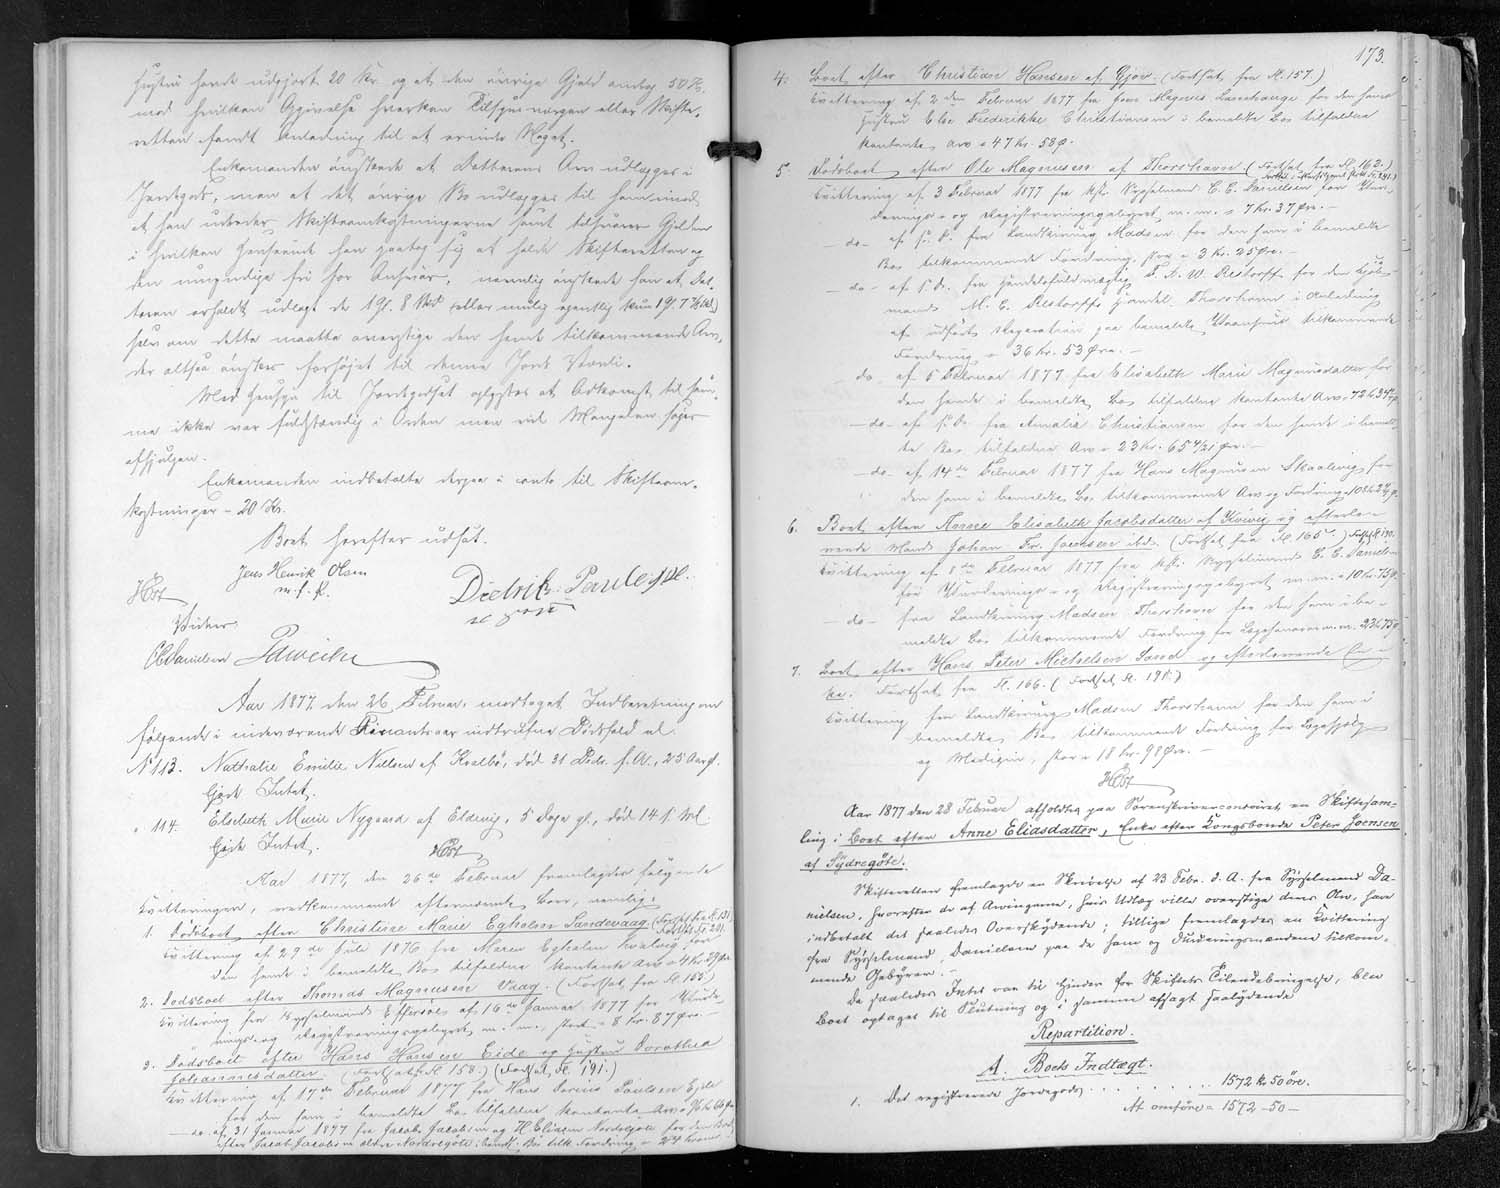 Hustru havde udgjort 20 Kr. og at den øvrige Gjæld androg 50 Kr.,
mod hvilken Opgivelse hverken Tilsynsværgen eller Skifte-
retten fandt Anledning til at erindre Noget.
Enkemanden ønskede at Datterens Arv udlægges i
Jordegods, men at det øvrige Bo udlægges til ham, mod
at han udreder Skifteomkostningerne samt tilsvarer Gjælden
i hvilken Henseende han paatog sig at holde Skifteretten og
den umyndige fri for Ansvar, nemlig ønskede han at Dat-
teren erholdt udlagt de 19 G. 8 Sk
selv om dette maatte overstige den hende tilkommende Arv,
der altsaa ønskes forhøjet til denne Jords Værdi.
Med Hensyn til Jordegodset oplystes at Adkomst til sam-
me ikke var fuldstændig i Orden men vil Mangelen søges
afhjulpen.
Enkemanden indbetalte derpaa a conto til Skifteom-
kostninger - 20 Kr.
Boet herefter udsat.
HØst Jens Henrik Olsen Diedrik Poulsen
m. f. P.
Vidner
CE Danielsen
Aar 1877 den 26 Februar, modtoges Indberetning om
følgende i indeværende Finantsaar indtrufne Dødsfald:
No 113. Nathalie Emilie Nielsen af Kvalbø, død 31 Decbr. f. A., 25 Aar gl.
Ejede Intet.
" 114. Elsebeth Marie Nygaard af Eldevig, 5 Dage gl., død 14 f. M.
Ejede Intet.
HØst
Aar 1877, den 26de Februar fremlagdes følgende
Kvitteringer, vedkommende efternævnte Boer, nemlig:
1. Dødsboet efter Christine Marie Egholm Sandevaag (Fortsat fra Fl. 131)
Kvittering af 29de Juli 1876 fra Maren Egholm Kvalvig for
den hende i bemeldte Bo tilfaldne kontante Arv = 4 Kr. 39 Øre
2. Dødsboet efter Thomas Magnussen Vaag. (Fortsat fra Fl. 153)
Kvittering fra Sysselmand Effersøe af 16de Januar 1877 for Vurde-
rings- og Registreringsgebyret m. m., stort = 8 Kr. 87 Øre. —
3. Dødsboet efter Hans Hansen Eide og Hustru Dorothea
Johannesdatter. (Fortsat fra Fl 158.) (Fortsat, Fl. 191.)
Kvittering af 17de Februar 1877 fra Hans Poulsen Ejde
for den ham i bemeldte Bo tilfaldne kontante Arv
— do. af 31 Januar 1877 fra Jacob Jacobsen og H. Eliasen Nordregøte for den Boet
efter Jacob Jacobsen ældre Nordregøte i bemdt. Bo tilk. Fordring = 24 Kroner
173.
4. Boet efter Christian Hansen af Gjov. (Fortsat fra Fl. 157.)
Kvittering af 2den Februar 1877 fra Jens Magnus for den hans
Hustru Else Frederikke Christiansen i bemeldte Bo tilfaldne
kontante Arv = 47 Kr. 58 Ø.
5. Dødsboet efter Ole Magnussen af Thorshavn. (Fortsat fra Fl. 162.)
Kvittering af 3 Februar 1877 fra kst. Sysselmand C. E. Danielsen for Vur-
derings- og Registreringsgebyret m. m. = 7 Kr. 37 Øre. —
— do — af s. D. fra Landkirurg Madsen for den ham i bemeldte
Bo tilkommende Fordring, stor = 3 Kr. 25 Øre. —
— do — af s. D. fra Handelsfuldmægtig F. A. W. Restorff for den Kjøb-
mand M. C. Restorffs Handel Thorshavn i Anledning
af udført Reparation paa bemeldte Vaanhuus tilkommende
Fordring = 36 Kr. 53 Øre. —
do — af 5 Februar 1877 fra Elisabeth Marie Magnusdatter for
den hende i bemeldte Bo tilfaldne kontante Arv
— do — af s. D. fra Amalie Christiansen for den hende i bemel-
te Bo tilfaldne Arv = 23 Kr. 65 4/21 Øre. —
— do — af 14de Februar 1877 fra Hans Magnussen Skaalevig for
den ham i bemeldte Bo tilkommende Arv og Fordring
6. Boet efter Anne Elisabeth Jacobsdatter af Kvivig og efterle-
vende Mand Johan Fr. Joensen ibd. (Fortsat fra Fl. 165.) (Forts. Fl. 190.)
Kvittering af 8de Februar 1877 fra kst. Sysselmand C. E. Danielsen
for Vurderings- og Registreringsgebyret m. m. = 10 Kr. 75 Ø.
— do — fra Landkirurg Madsen Thorshavn for den ham i be-
meldte Bo tilkommende Fordring for Lægehonorar m. m. 23 Kr 75 Ø
7. Boet efter Hans Peter Michelsen Sand og efterlevende En-
ke. Fortsat fra Fl. 166. (Fortsat Fl. 191.)
Kvittering fra Landkirurg Madsen Thorshavn for den ham i
bemeldte Bo tilkommende Fordring for Lægehjælp
og Medicin, stor = 18 Kr. 98 Øre. —
HØst
Aar 1877 den 28 Februar afholdtes paa Sorenskrivercontoiret en Skiftesam-
ling i Boet efter Anne Eliasdatter, Enke efter Kongsbonde Peter Joensen
af Sydregøte.
Skifteretten fremlagde en Skrivelse af 23 Febr. d. A. fra Sysselmand Da-
nielsen, hvorefter de af Arvingerne, hvis Udlæg vilde overstige deres Arv, have
indbetalt det saaledes Overskydende; tillige fremlagdes en Kvittering
fra Sysselmand Danielsen paa de ham og Vurderingsmændene tilkom-
mende Gebyrer. —
Da saaledes Intet var til Hinder for Skiftets Tilendebringelse, blev
Boet optaget til Slutning og i samme afsagt saalydende
Repartition.
A. Boets Indtægt.
1. Det registrerede Jordegods . . . . . . . . . . 1572 kr 50 øre.
At overføre = 1572 - 50 —